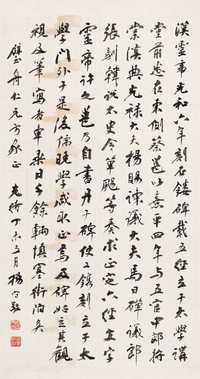 漢靈帝光和六年刻石鏤碑載五經立于太學講
堂前悉在東側蔡邕以熹平四年與五官中郎將
堂谿典光祿大夫楊賜諫議大夫馬日磾議郎
張馴韓說太史令單颺等奏求正定六經文字
靈帝許之邕乃自書丹于碑使鐫刻立于太
學門外于是後儒晚學咸取正焉及碑始立其觀
視及筆寫者車乘日千餘輛填塞街陌矣
舟仁兄方家正 光緒丁 三月 楊守敬